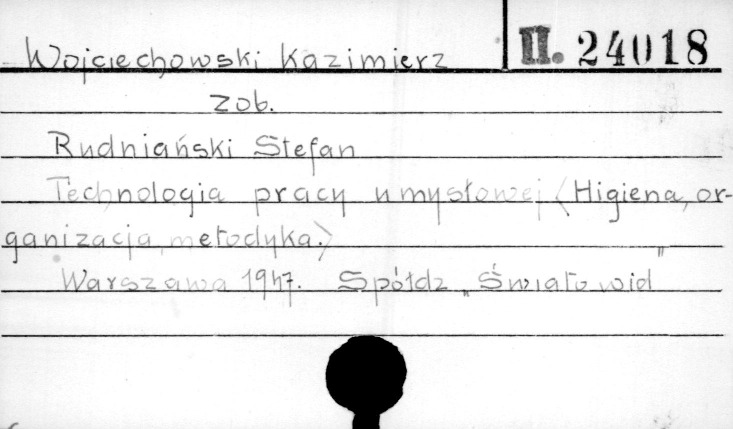 Wojciechowski Kazimierz II. 24018
zob.
Rudniański Stefan
Technologia pracy umysłowej (Higiena, or-
ganizacja, metodyka.)
Warszawa 1947. Spółdz „Światowid"